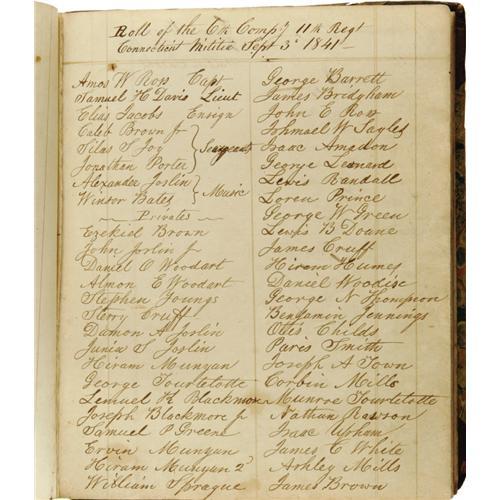 Roll of the 6th Compy 11th Regt
Connecticut Militia Sept 3d 1841
Amos W Ross Capt
Samuel H Davis Lieut
Elias Jacobs Ensign
Caleb Brown jr
Silas S Joy
Jonathan Porter
Sergeants
Alexander Joslin
Winsor Bates
Music
Privates
Ezekiel Brown
John Joslin jr
Daniel C Woodart
Almon E Woodart
Stephen Youngs
Sterry Cruff
Damon A Joslin
Junia S Joslin
Hiram Munyan
George Tourtelotte
Lemuel K Blackmore
Joseph Blackmore jr
Samuel P Greene
Ervin Munyan
Hiram Munyan 2d
William Sprague
George Barrett
James Bridgham
John E Ross
Ishmael W Sayles
Isaac Amsdon
George Leonard
Lewis Randall
Loren Prince
George W Green
Lewis B Doane
James Cruff
Hiram Humes
Daniel Woodise
George N Thompson
Benjamin Jennings
Ottis Childs
Paris Smith
Joseph A Town
Corbin Mills
Munroe Tourtelotte
Nathan Rawson
Isaac Upham
James C White
Ashley Mills
James Brown